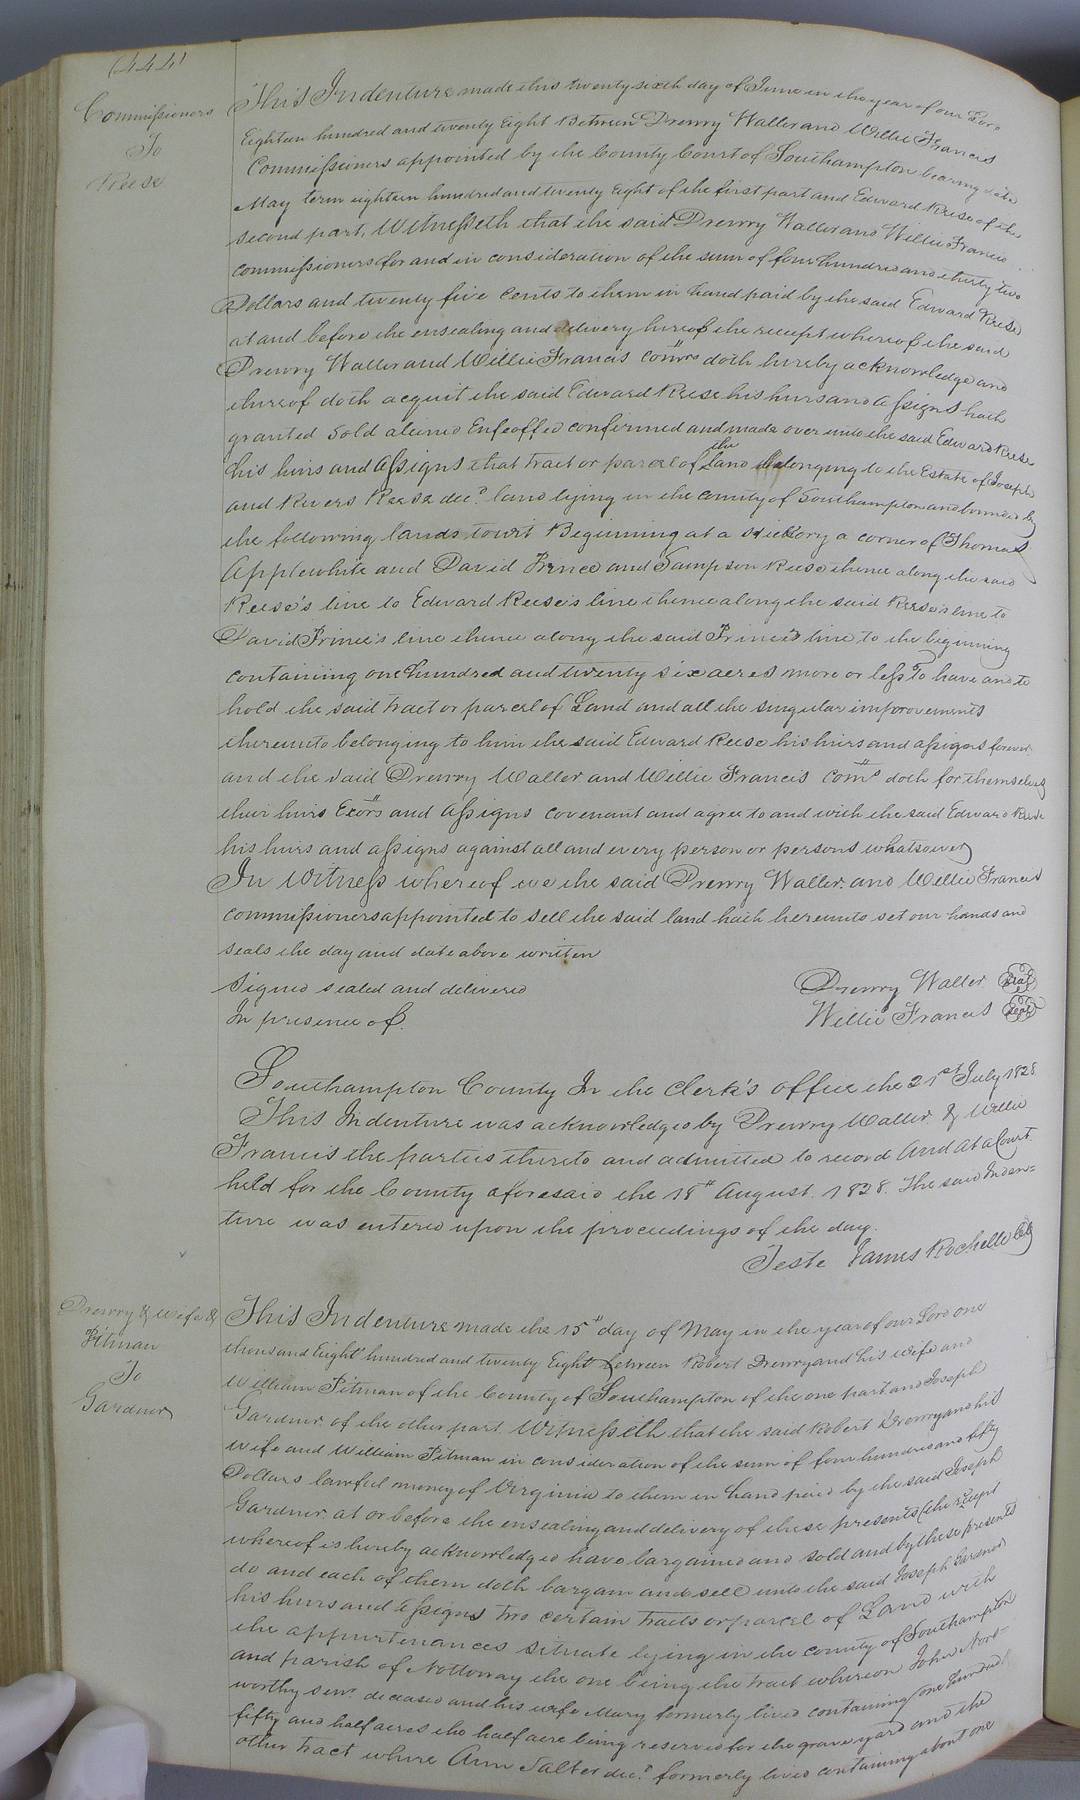 (444)
Commissioners
To
Reese
This Indenture made this twenty sixth day of June in the year of our Lord
Eighteen hundred and twenty Eight Between Drewry Waller and Willie Francis
Commissioners appointed by the County Court of Southampton bearing date
May term eighteen hundred and twenty Eight of the first part and Edward Reese of the
second part, Witnesseth that the said Drewry Waller and Willie Francis
commissioners for and in consideration of the sum of four hundred and thirty two
Dollars and twenty five cents to them in hand paid by the said Edward Reese
at and before the ensealing and delivery hereof the receipt whereof the said
Drewry Waller and Willie Francis Comrs doth hereby acknowledge and
thereof doth acquit the said Edward Reese his heirs and assigns hath
granted sold aliened Enfeoffed confirmed and made over unto the said Edward Reese
his heirs and assigns that tract or parcel of the Land belonging to the Estate of Joseph
and Rivers Reese decd. land lying in the County of Southampton and bounded by
the following lands towit Beginning at a Hickory a corner of Thomas
Applewhite and David Prince and Sampson Reese thence along the said
Reese's line to Edward Reese's line thence along the said Reese's line to
David Prince's line thence along the said Prince's line to the beginning
containing one hundred and twenty six acres more or less To have and to
hold the said tract or parcel of Land and all the singular improvements
thereunto belonging to him the said Edward Reese his heirs and assigns forever
and the said Drewry Waller and Willie Francis Coms doth for themselves
their heirs Exors and assigns covenant and agree to and with the said Edward Reese
his heirs and assigns against all and every person or persons whatsoever
In Witness whereof we the said Drewry Waller and Willie Francis
commissioners appointed to sell the said land hath hereunto set our hands and
seals the day and date above written
Signed sealed and delivered
In presence of
Drewry Waller Seal
Willie Francis Seal
Southampton County In the Clerk's office the 21st July 1828
This Indenture was acknowledged by Drewry Waller & Willie
Francis the parties thereto and admitted to record And at a Court
held for the County aforesaid the 18th August 1828. The said Inden=
ture was entered upon the proceedings of the day.
Teste James Rochelle Clk
Drewry & wife &
Pitman
To
Gardner
This Indenture made the 15th day of May in the year of our Lord one
thousand Eight hundred and twenty Eight between Robert Drewry and his wife and
William Pitman of the County of Southampton of the one part and Joseph
Gardner of the other part Witnesseth that the said Robert Drewry and his
wife and William Pitman in consideration of the sum of four hundred and fifty
Dollars lawful money of Virginia to them in hand paid by the said Joseph
Gardner at or before the ensealing and delivery of these presents (the receipt
whereof is hereby acknowledged have bargained and sold and by these presents
do and each of them doth bargain and sell unto the said Joseph Gardner
his heirs and assigns two certain tracts or parcel of Land with
the appurtenances situate lying in the county of Southampton
and parish of Nottoway the one being the tract whereon John Nor-
worthy senr. deceased and his wife Mary formerly lived containing one hundred
fifty and half acres the half acre being reserved for the grave yard and the
other tract where Ann Salter decd. formerly lived containing about one